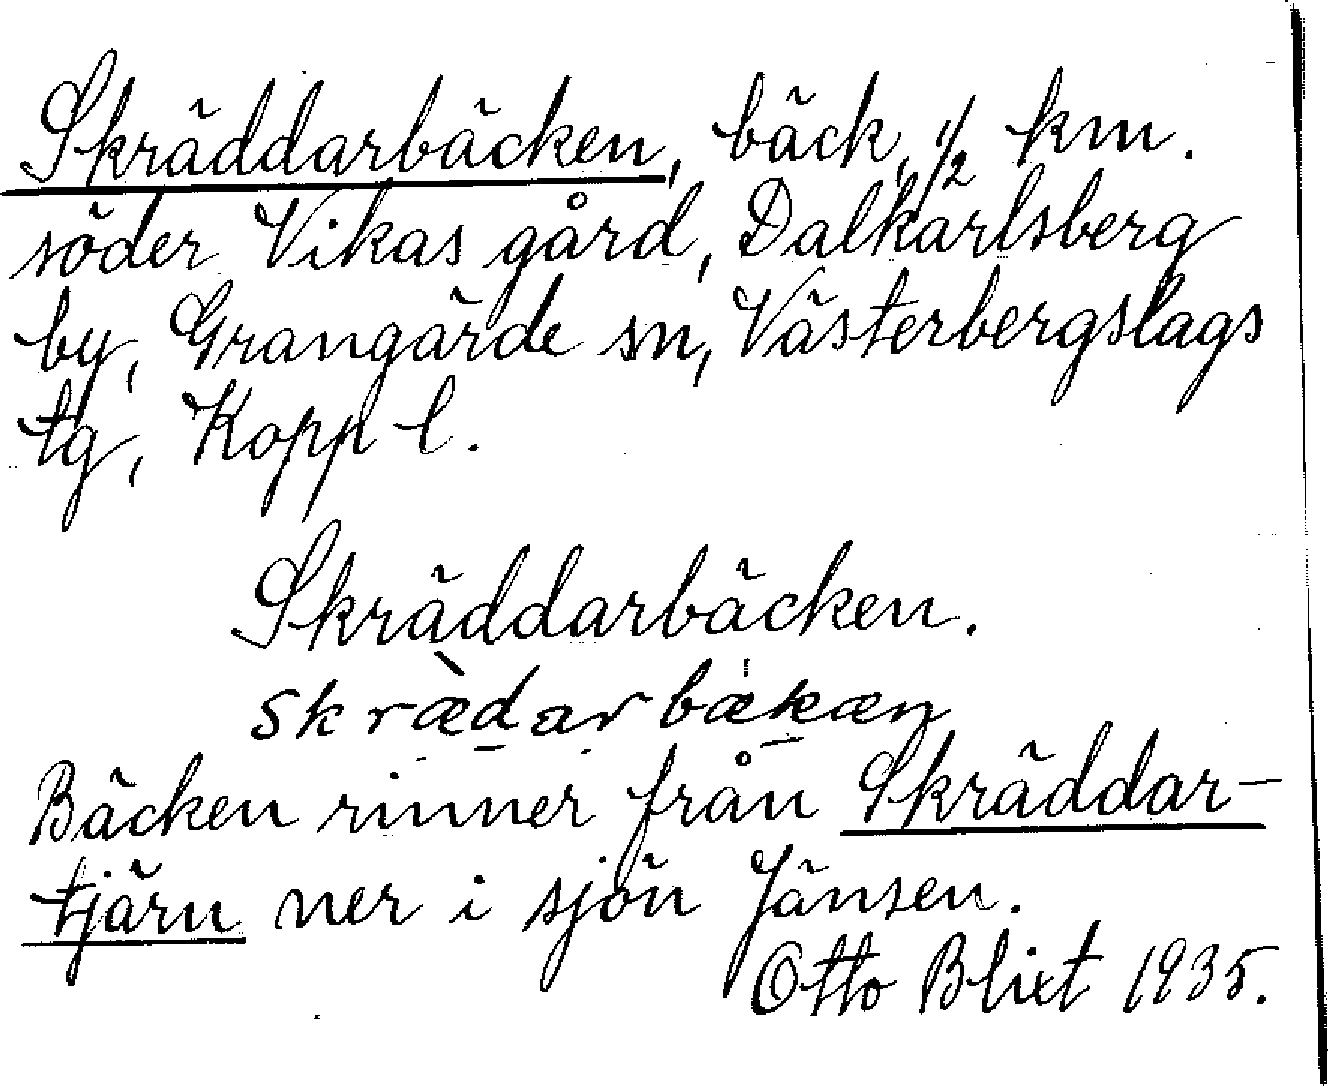 Skräddarbäcken, bäck, 1/2 km.
söder Vikas gård, Dalkarlsberg
by, Grangärde sn, Västerbergslags
tg, Kopp l.
Skräddarbäcken.
skræ̀darbækæn
Bäcken rinner från Skräddar-
tjärn ner i sjön Jänsen.
Otto Blixt 1935.